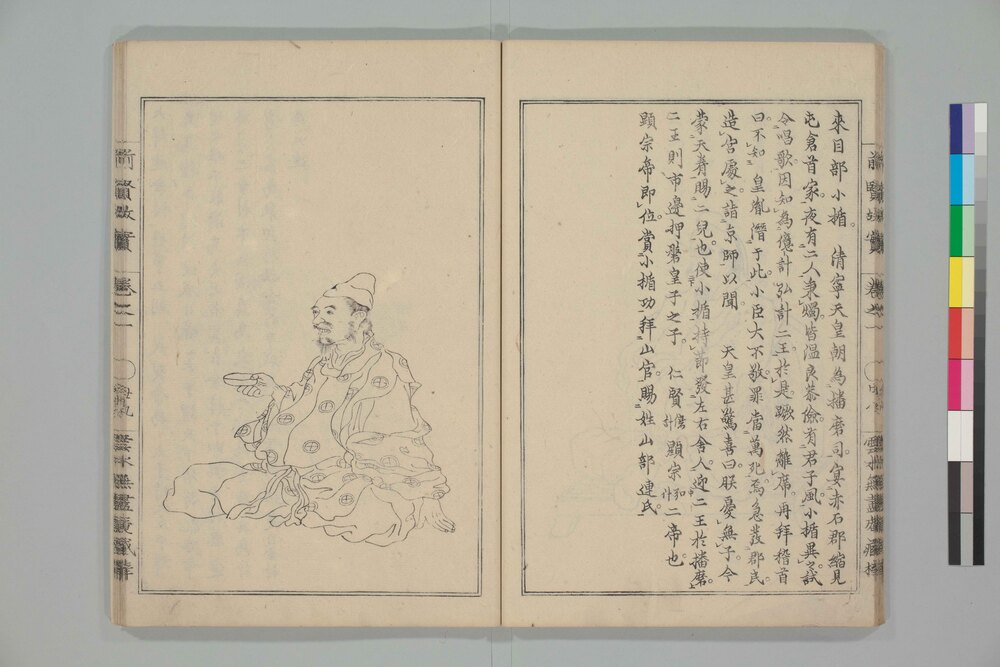 來目部小楯 清寧天皇朝為播磨司宴赤石郡縮見
屯倉首家夜有二人秉燭皆溫良恭儉有君子風小楯異之試
令唱歌因知為億計弘計二王於是蹶然離席再拜稽首
曰不知 皇胤潛于此小臣大不敬罪當萬死焉急發郡民
造宮處之詣京師以聞 天皇甚驚喜曰朕憂無子今
蒙天眷賜二兒也使小楯持節發左右舍人迎二王於播磨
二王則市邊押磐皇子之子 仁賢億計顯宗弘計二帝也
顯宗帝即位賞小楯功拜山官賜姓山部連氏
前賢故實 卷之一